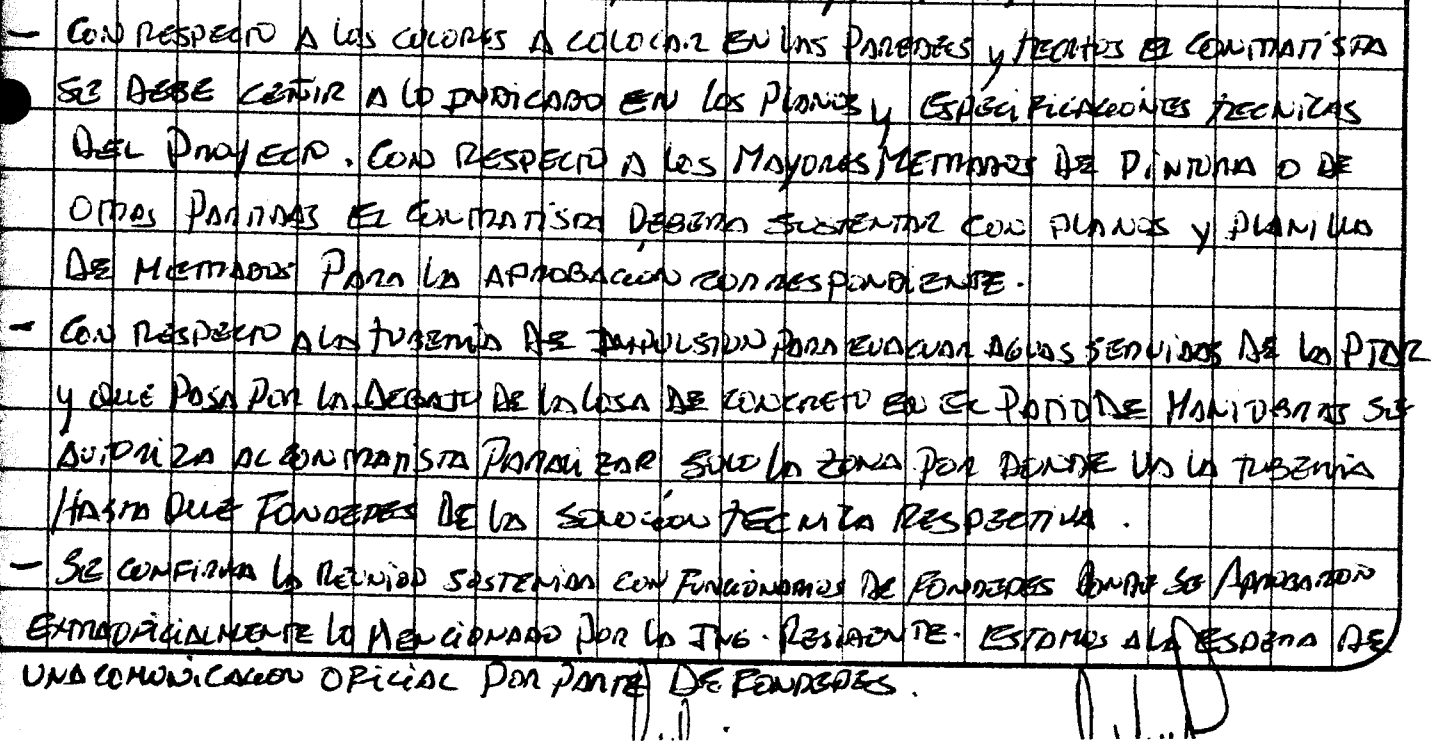 - CON RESPECTO A LOS COLORES A COLOCAR EN LAS PAREDES y TECHOS EL CONTRATISTA
SE DEBE CEÑIR A LO INDICADO EN LOS PLANOS y ESPECIFICACIONES TECNICAS
DEL PROYECTO. CON RESPECTO A LOS MAYORES METRADOS DE PINTURA O DE
OTRAS PARTIDAS EL CONTRATISTA DEBERA SUSTENTAR CON PLANOS y PLANILLA
DE METRADOS PARA LA APROBACION CORRESPONDIENTE.
- CON RESPECTO A LA TUBERIA DE IMPULSION PARA EVACUAR AGUAS SERVIDAS DE LA PTAR
y QUE PASA POR LA DEBAJO DE LA LOSA DE CONCRETO EN EL PATIO DE MANIOBRAS SE
AUTORIZA AL CONTRATISTA PARALIZAR SOLO LA ZONA POR DONDE VA LA TUBERIA
HASTA QUE FONDEPES DE LA SOLUCIÓN TECNICA RESPECTIVA.
- SE CONFIRMA LA REUNION SOSTENIDA CON FUNCIONARIOS DE FONDEPES DONDE SE APROBARON
EXTRAOFICIALMENTE LO MENCIONADO POR LA ING. RESIDENTE. ESTAMOS A LA ESPERA DE
UNA COMUNICACION OFICIAL POR PARTE DE FONDEPES.